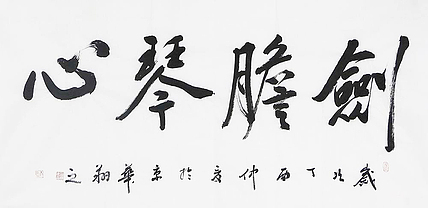 劍膽琴心
歲次丁酉仲夏於京華翔之